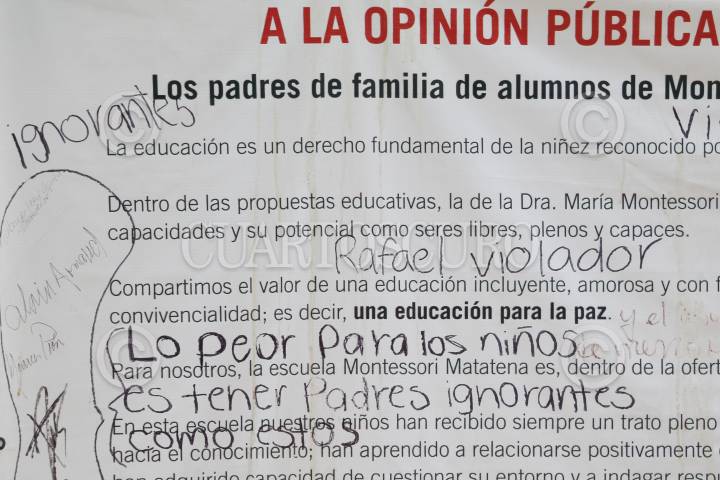 A LA OPINIÓN PÚBLICA
Los padres de familia de alumnos de Mon
ignorantes
Vi
La educación es un derecho fundamental de la niñez reconocido po
Dentro de las propuestas educativas, la de la Dra. María Montessori
capacidades y su potencial como seres libres, plenos y capaces.
CUARTOSCURO
Rafael violador
Compartimos el valor de una educación incluyente, amorosa y con f
convivencialidad; es decir, una educación para la paz.
y el
Lo peor para los niños
Para nosotros, la escuela Montessori Matatena es, dentro de la ofert
es tener Padres ignorantes
En esta escuela nuestros niños han recibido siempre un trato pleno
como estos
hacia el conocimiento; han aprendido a relacionarse positivamente
han adquirido capacidad de cuestionar su entorno y a indagar resp